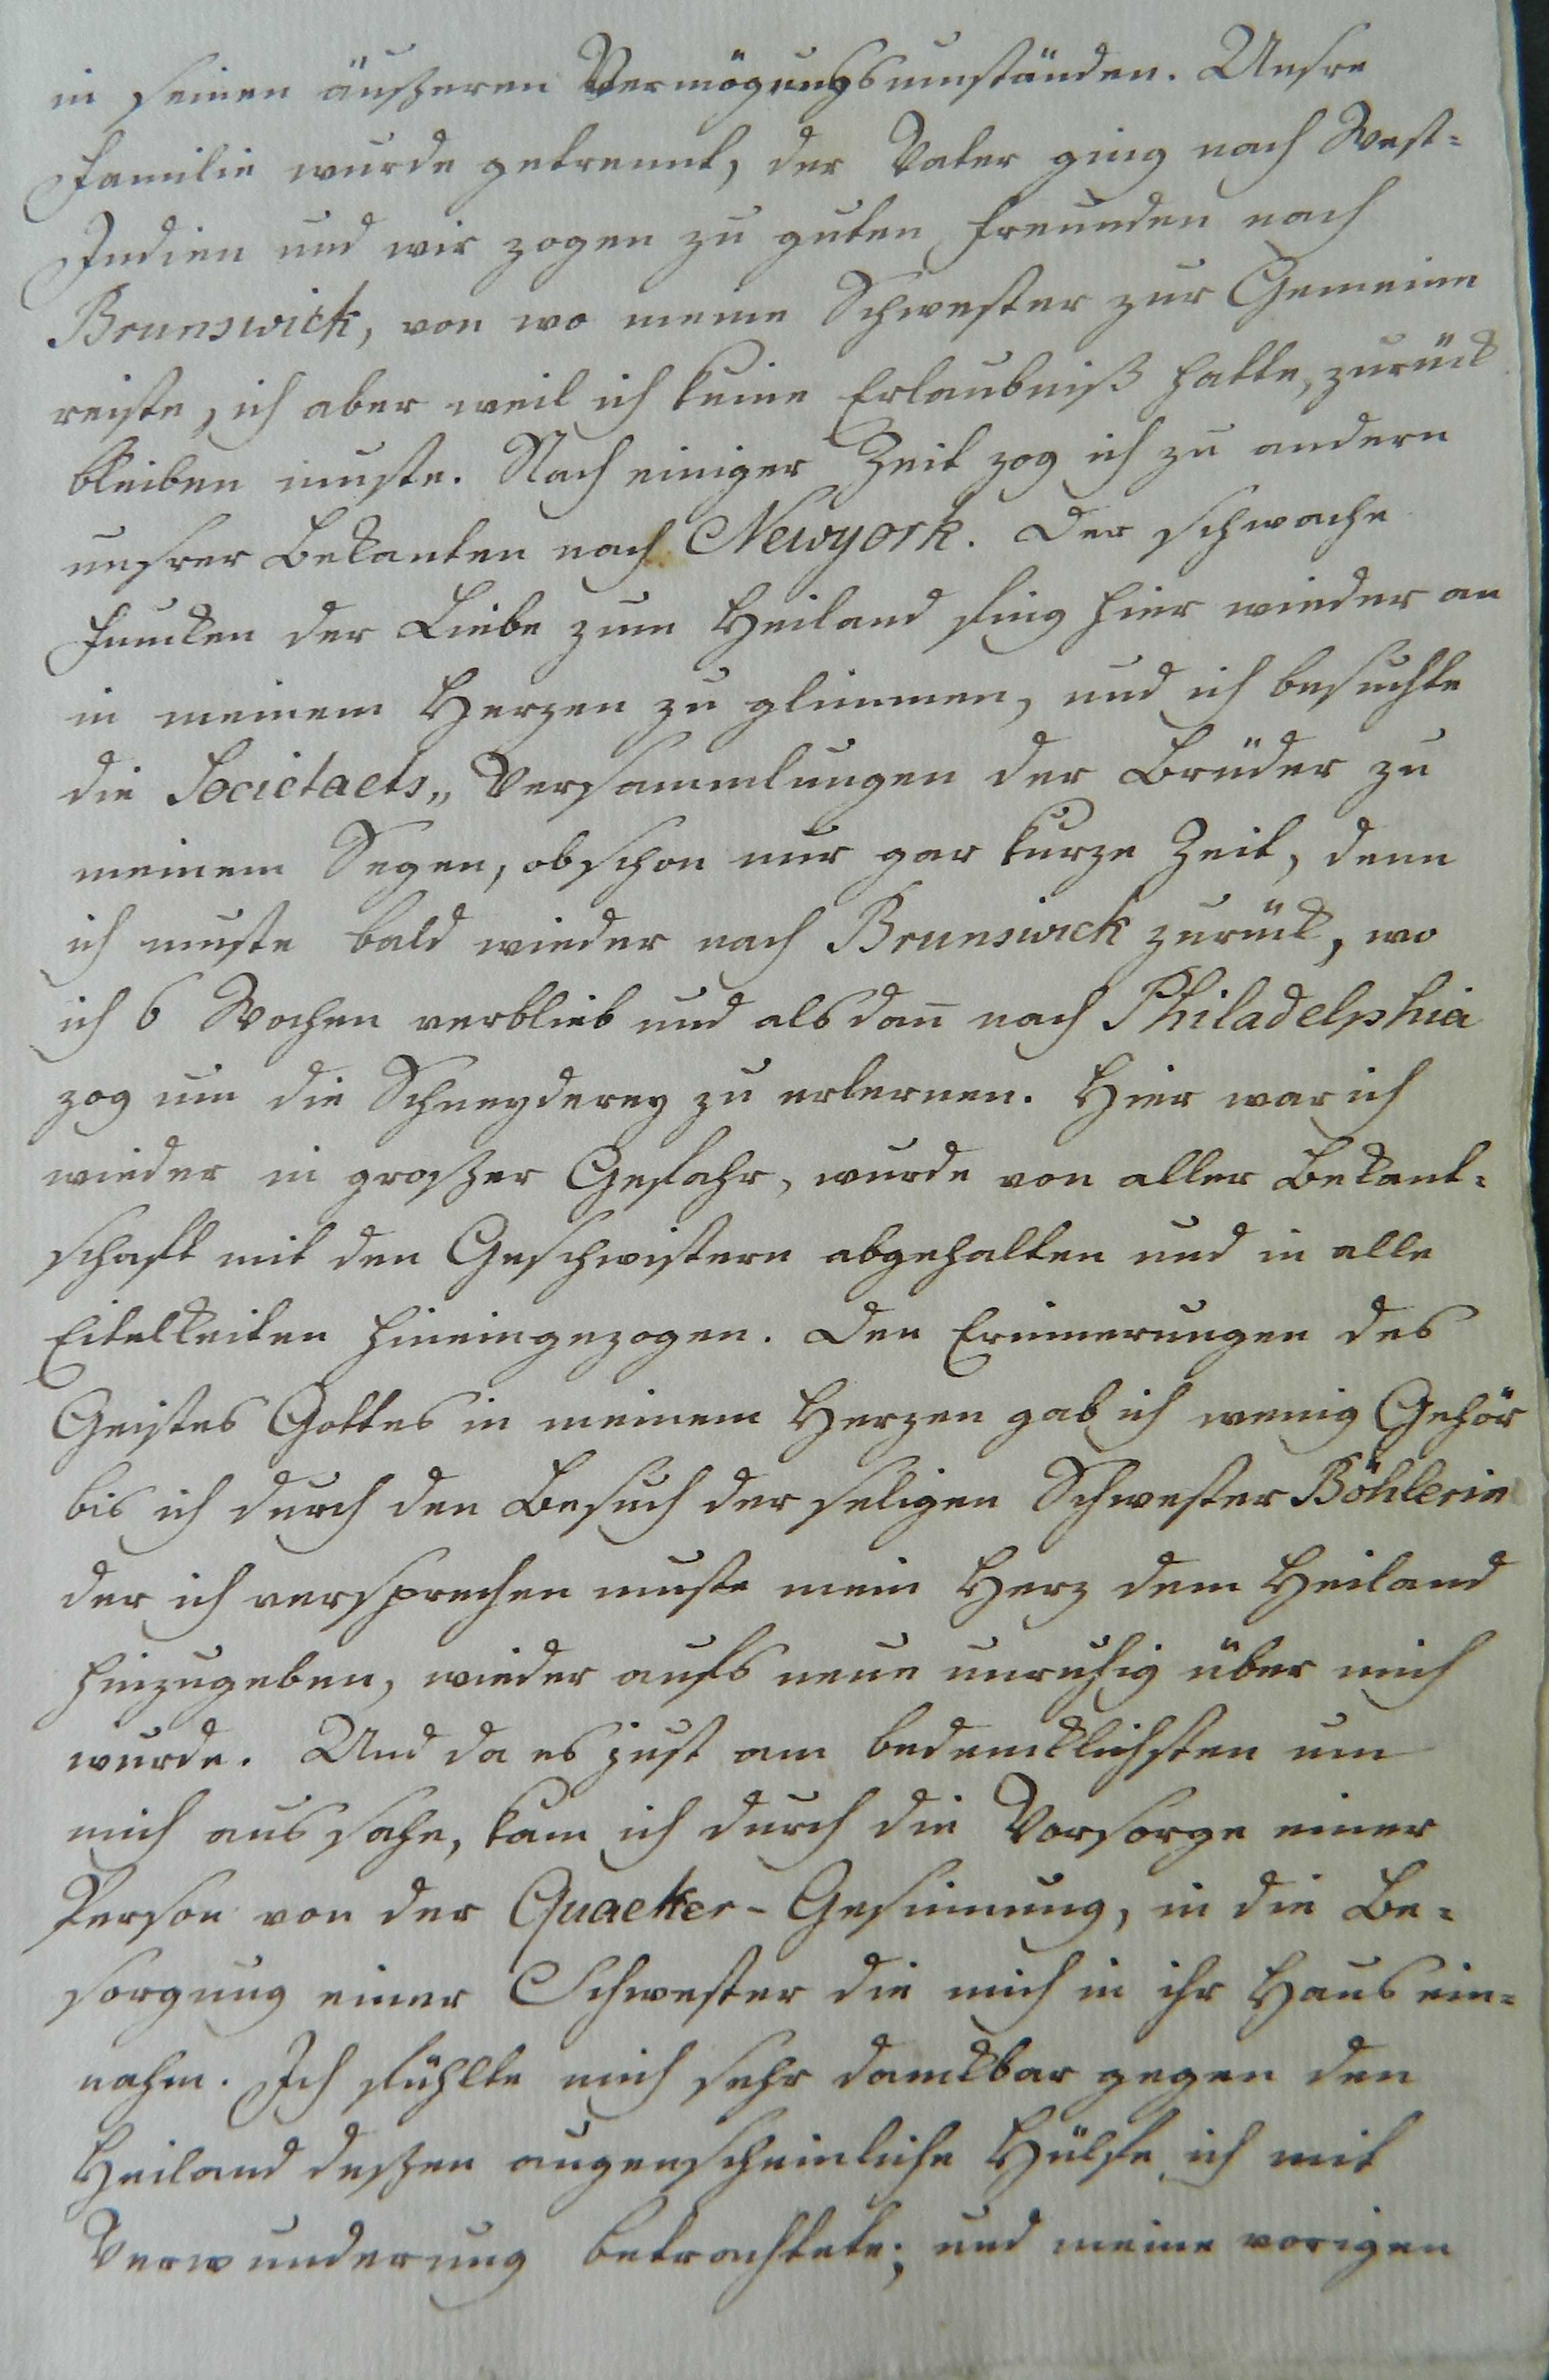 in seinen äußeren Vermögungsumständen. Unsre
Familie wurde getrennt, der Vater ging nach West=
Indien und wir zogen zu guten Freunden nach
Brunswick, von wo meine Schwester zur Gemeine
reiste, ich aber weil ich keine Erlaubniß hatte, zurück
bleiben muste. Nach einiger Zeit zog ich zu andern
unsrer Bekanten nach Newyork. Der schwache
Funcken der Liebe zum Heiland fing hier wieder an
in meinem Herzen zu glimmen, und ich besuchte
die Societaets„ Versammlungen der Brüder zu
meinem Segen, obschon nur gar kurze Zeit, denn
ich muste bald wieder nach Brunswick zurück, wo
ich 6 Wochen verblieb und alsdan̄ nach Philadelphia
zog um die Schneyderey zu erlernen. Hier war ich
wieder in großer Gefahr, wurde von aller Bekant=
schaft mit den Geschwistern abgehalten und in alle
Eitelkeiten hineingezogen. Den Erinnerungen des
Geistes Gottes in meinem Herzen gab ich wenig Gehör
bis ich durch den Besuch der seligen Schwester Böhlerin
der ich versprechen muste mein Herz dem Heiland
hinzugeben, wieder aufs neue unruhig über mich
wurde. Und da es just am bedencklichsten um
mich aussahe, kam ich durch die Vorsorge einer
Person von der Quaeker-Gesinnung, in die Be=
sorgung einer Schwester die mich in ihr Haus ein=
nahm. Ich fühlte mich sehr danckbar gegen den
Heiland deßen augenscheinliche Hülfe ich mit
Verwunderung betrachtete; und meine vorigen